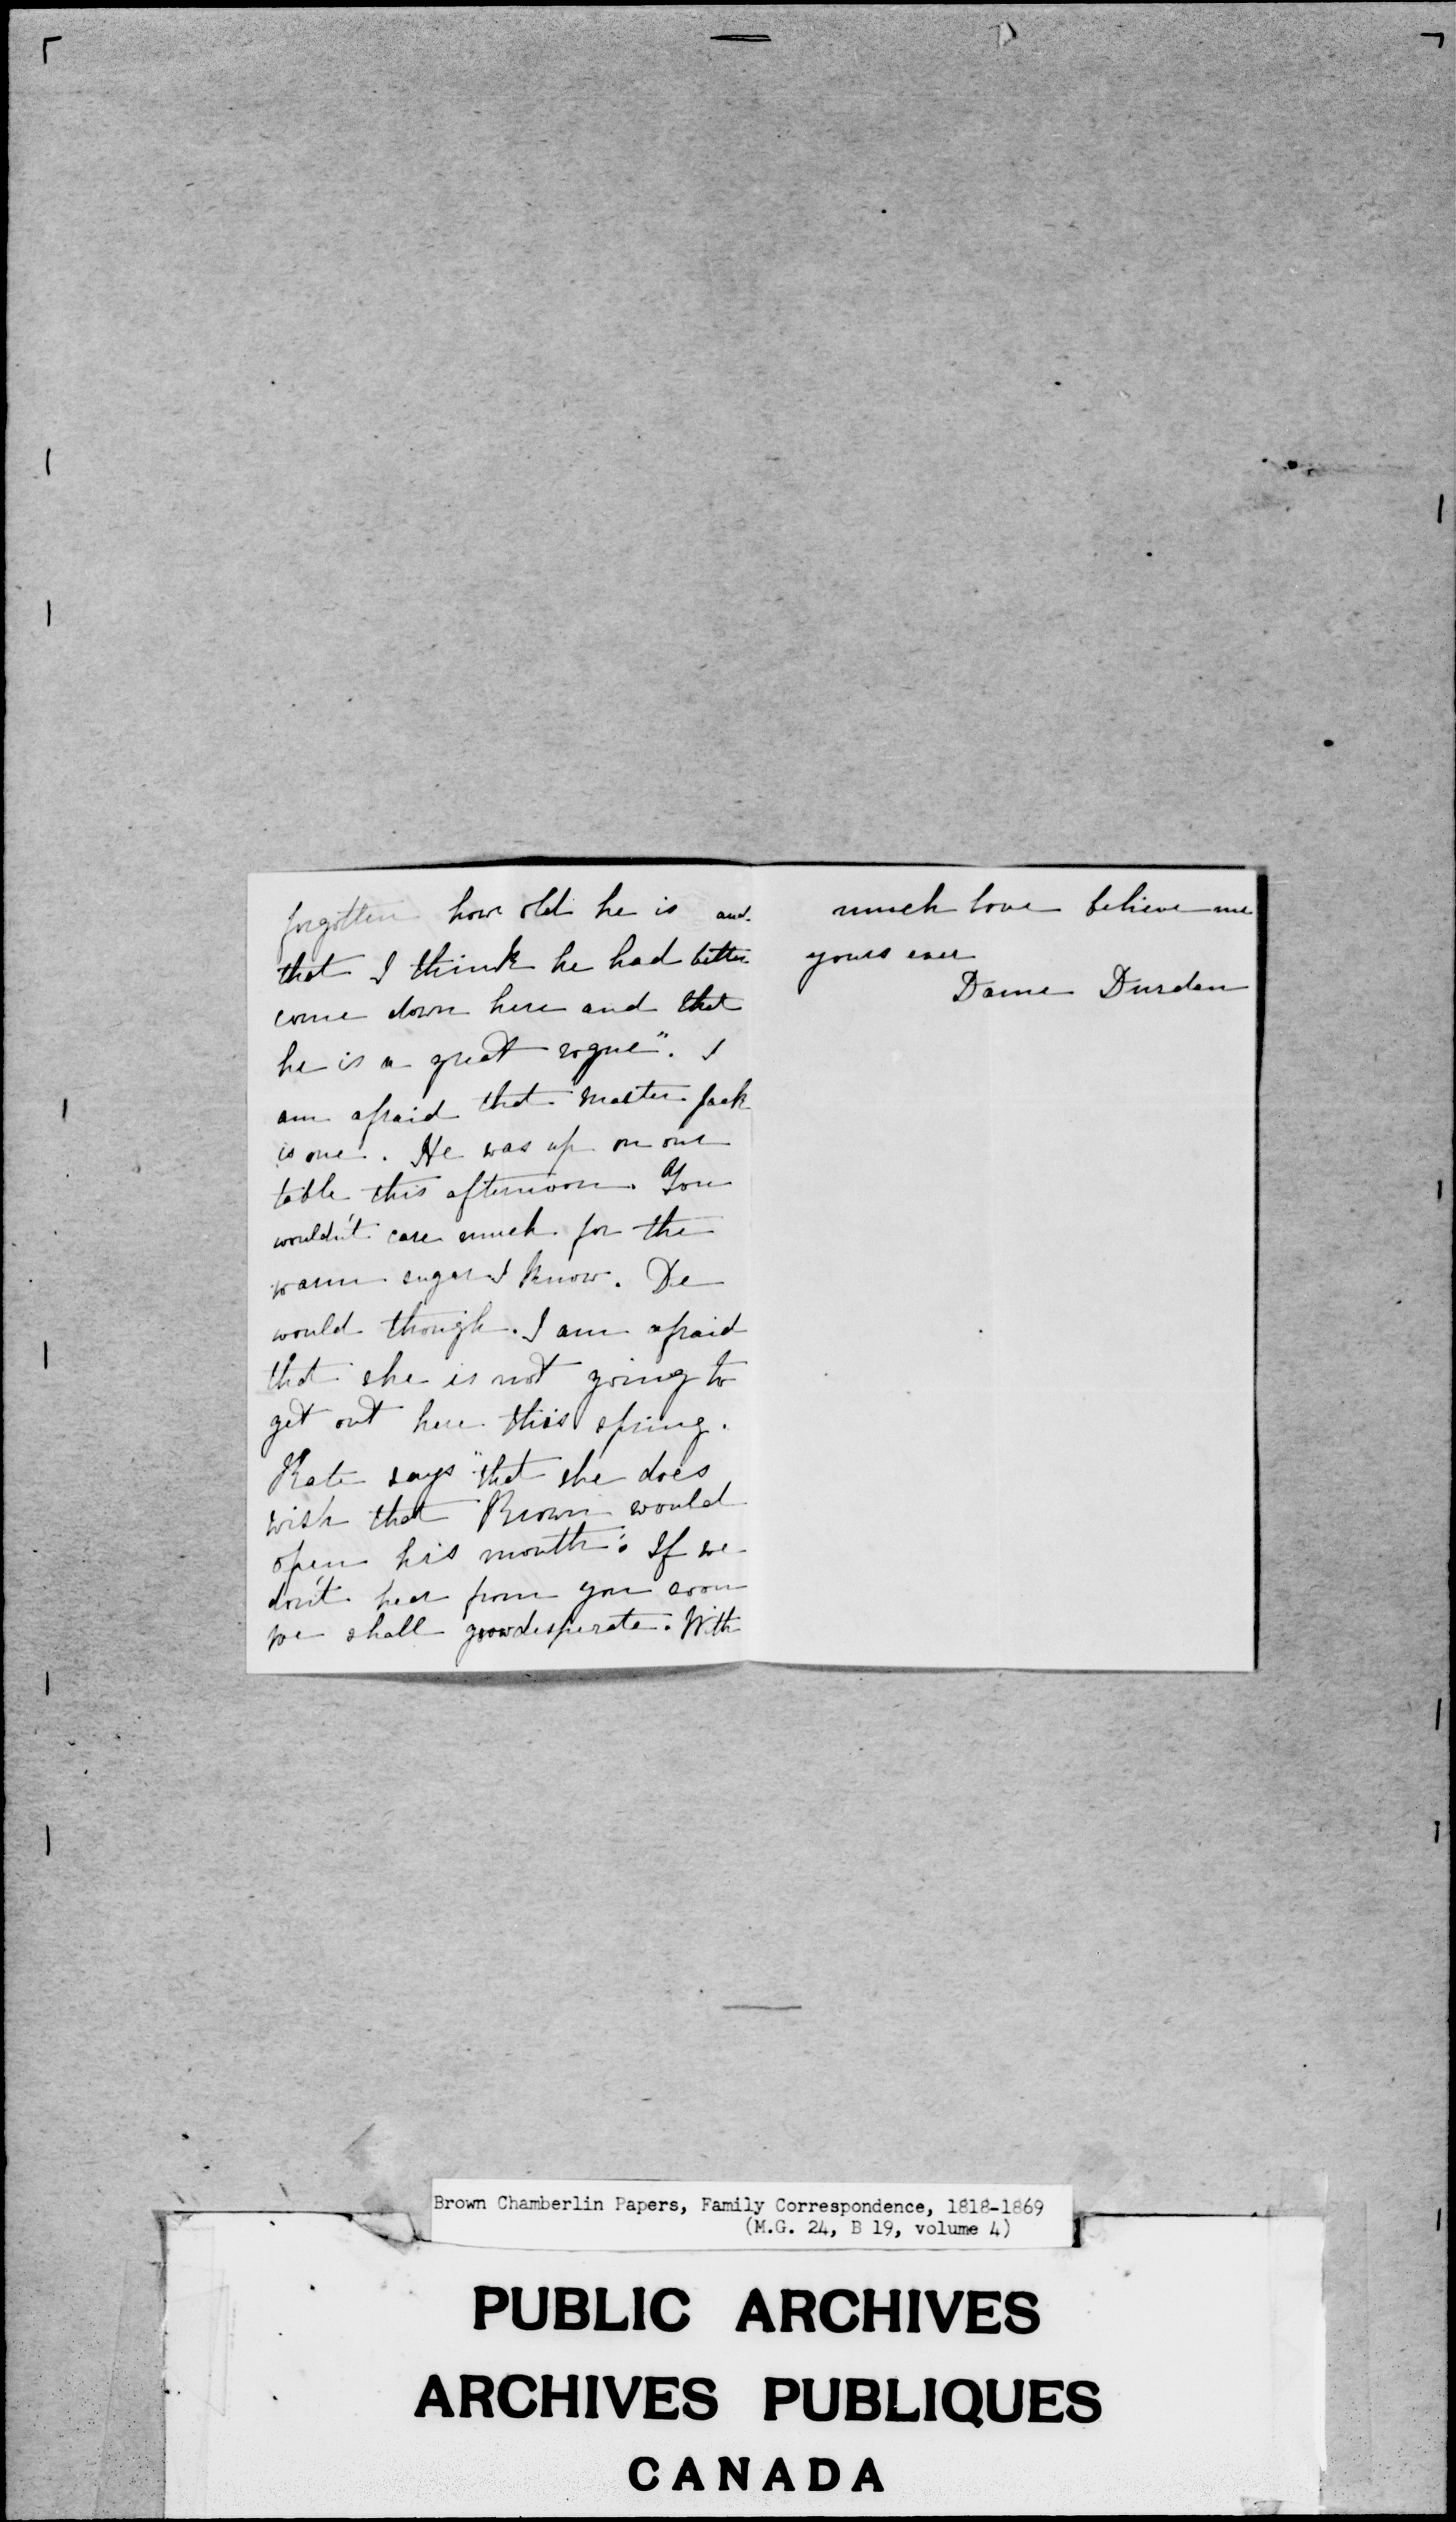 forgotten how old he is and
that I think he had better
come down here and that
he is a great rogue". I
am afraid that Master Jack
is one. He was up on our
table this afternoon. You
wouldn't care much for the
warm sugar I know. De
would though. I am afraid
that she is not going to
get out here this spring.
Kate says "that she does
wish that Brown would
open his mouth". If we
don't hear from you soon
we shall grow desperate. With
much love believe me
yours ever
Dame Durden
Brown Chamberlin Papers, Family Correspondence, 1818-1869
(M.G. 24, B 19, volume 4)
PUBLIC ARCHIVES
ARCHIVES PUBLIQUES
CANADA